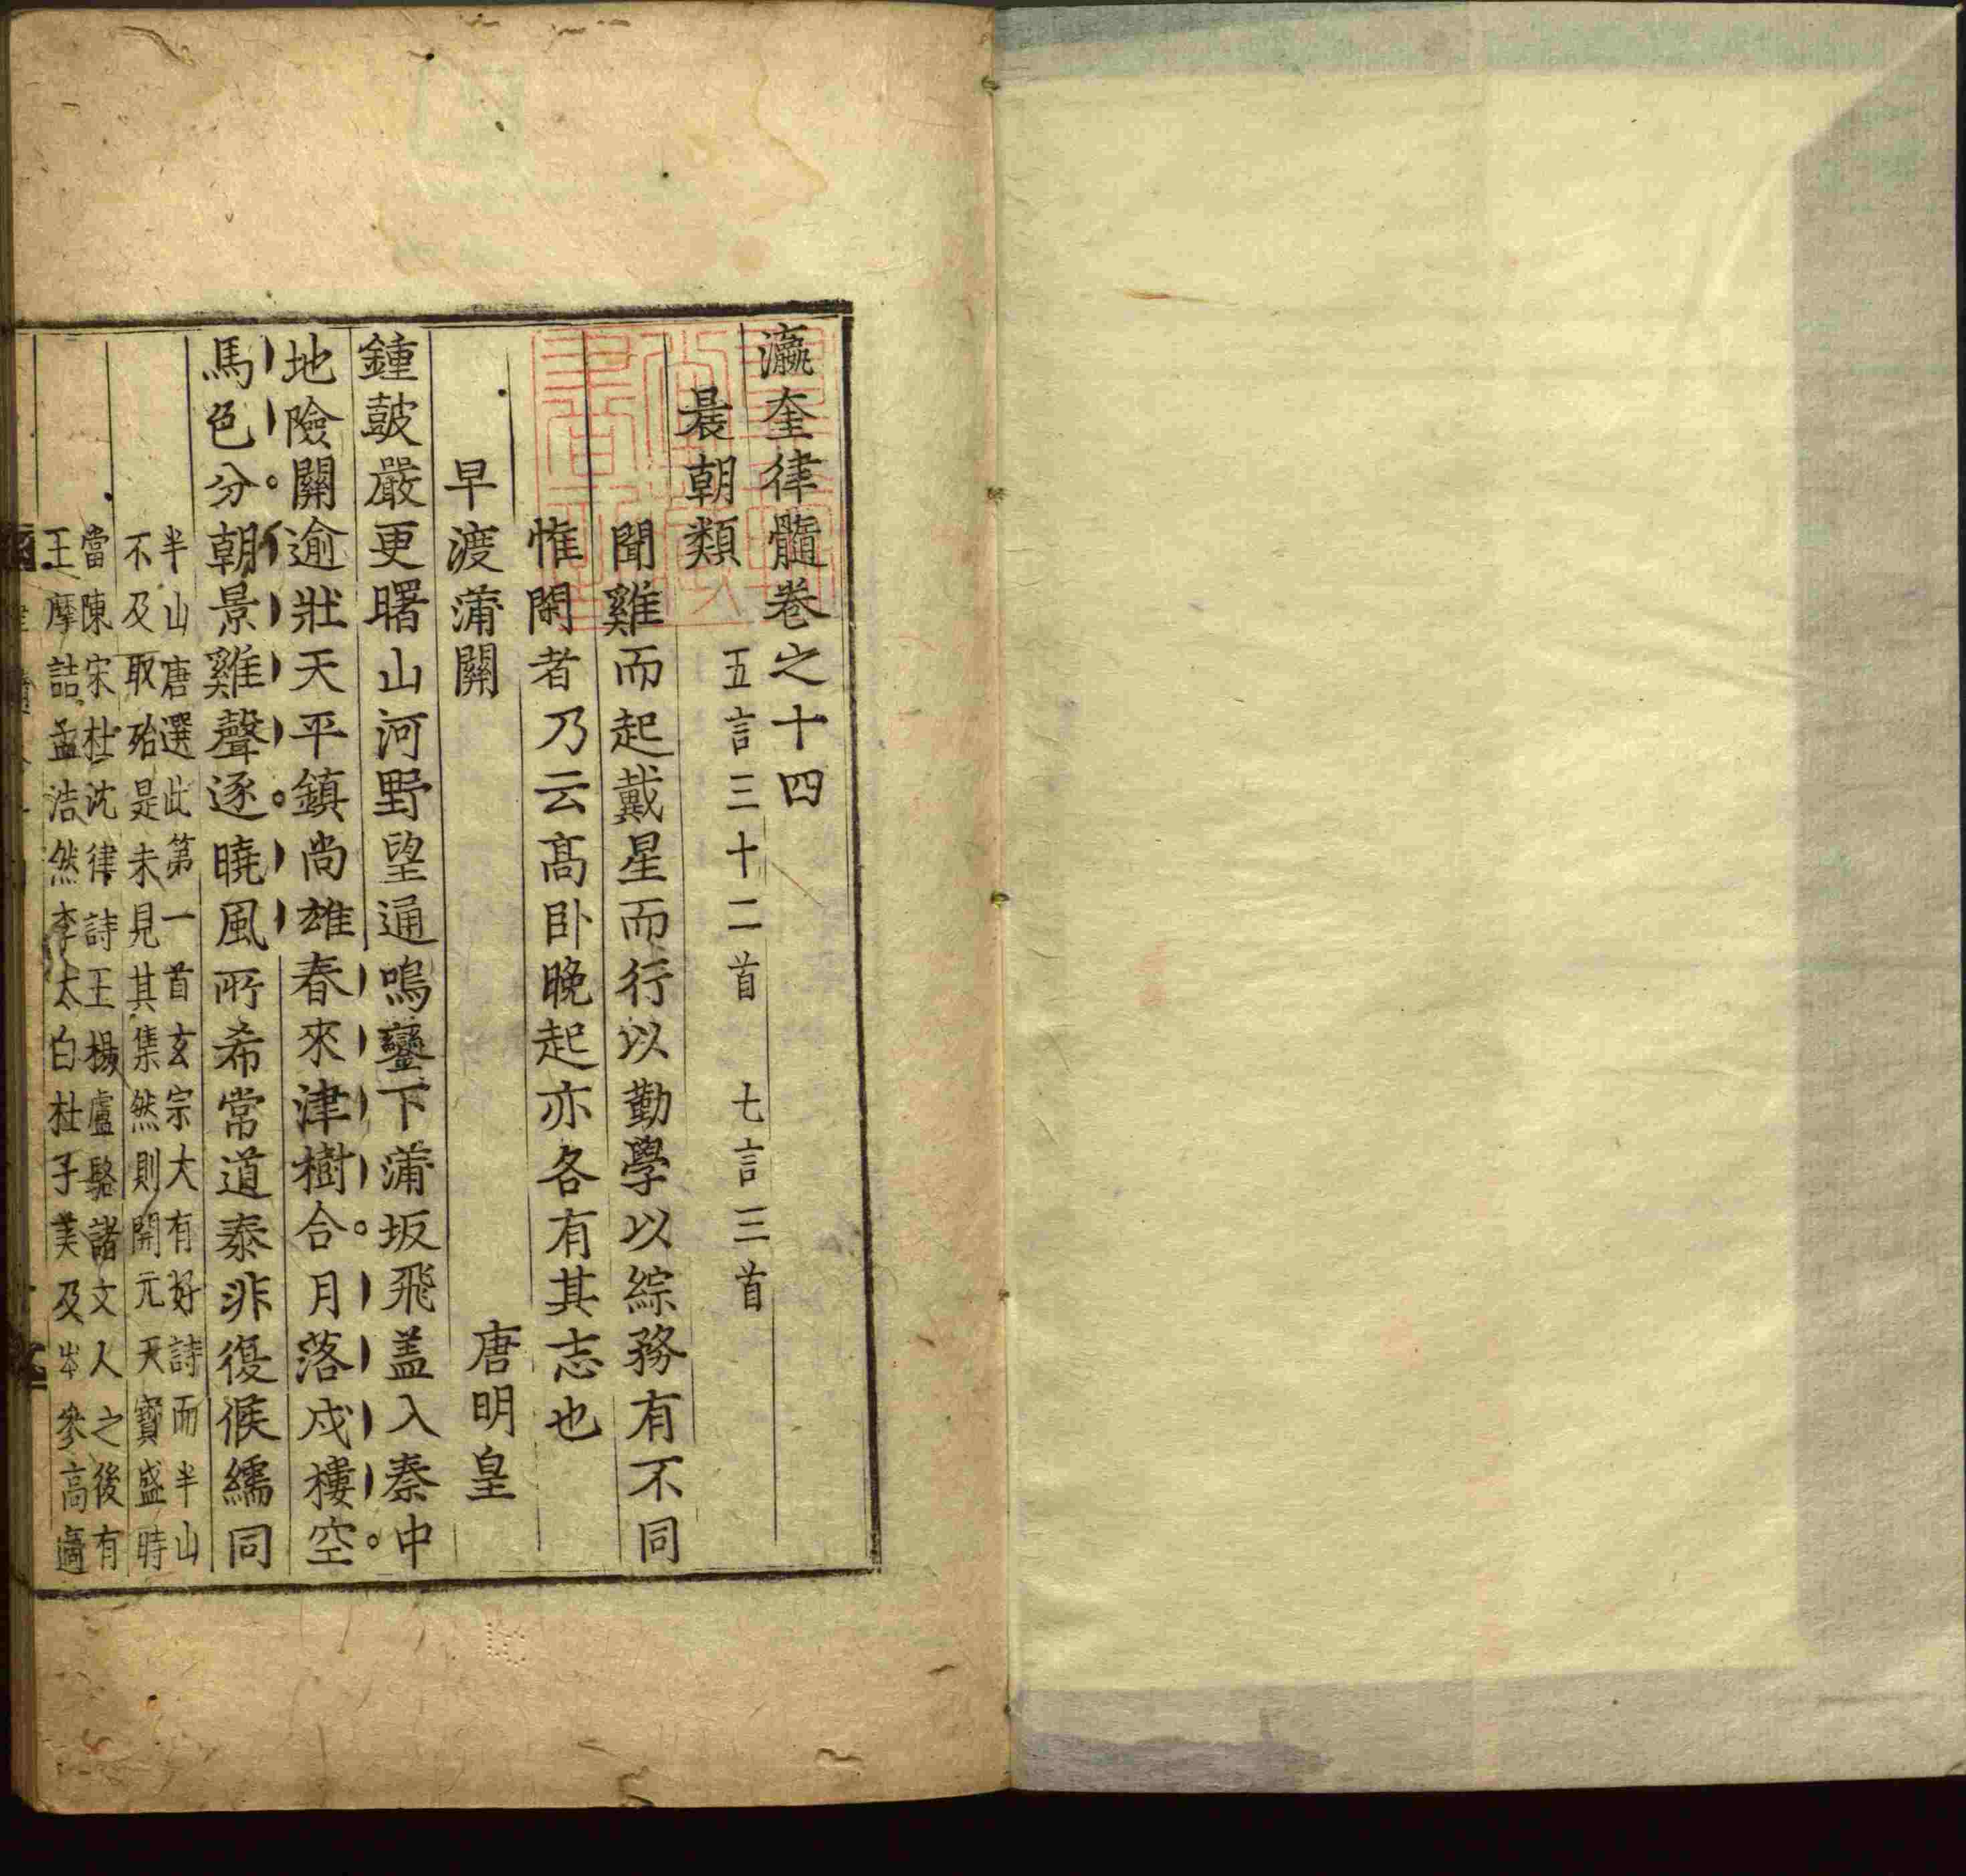 瀛奎律髓卷之十四
晨朝類
五言三十二首　七言三首
聞雞而起戴星而行以勤學以綜務有不同
惟閑者乃云髙卧晚起亦各有其志也
早渡蒲關
唐明皇
鍾鼓嚴更曙山河野望通嗚鑾下蒲坂飛盖入秦中
地險關逾壯天平鎮尚雄春來津樹合月落戍樓空
馬色分朝景雞聲逐曉風所希常道泰非復候繻同
半山唐選此第一首玄宗大有好詩而半山
不及取殆是未見其集然則開元天寳盛時
當陳宋杜沈律詩王楊盧駱諸文人之後有
王摩詰孟浩然李太白杜子美及岑參高適